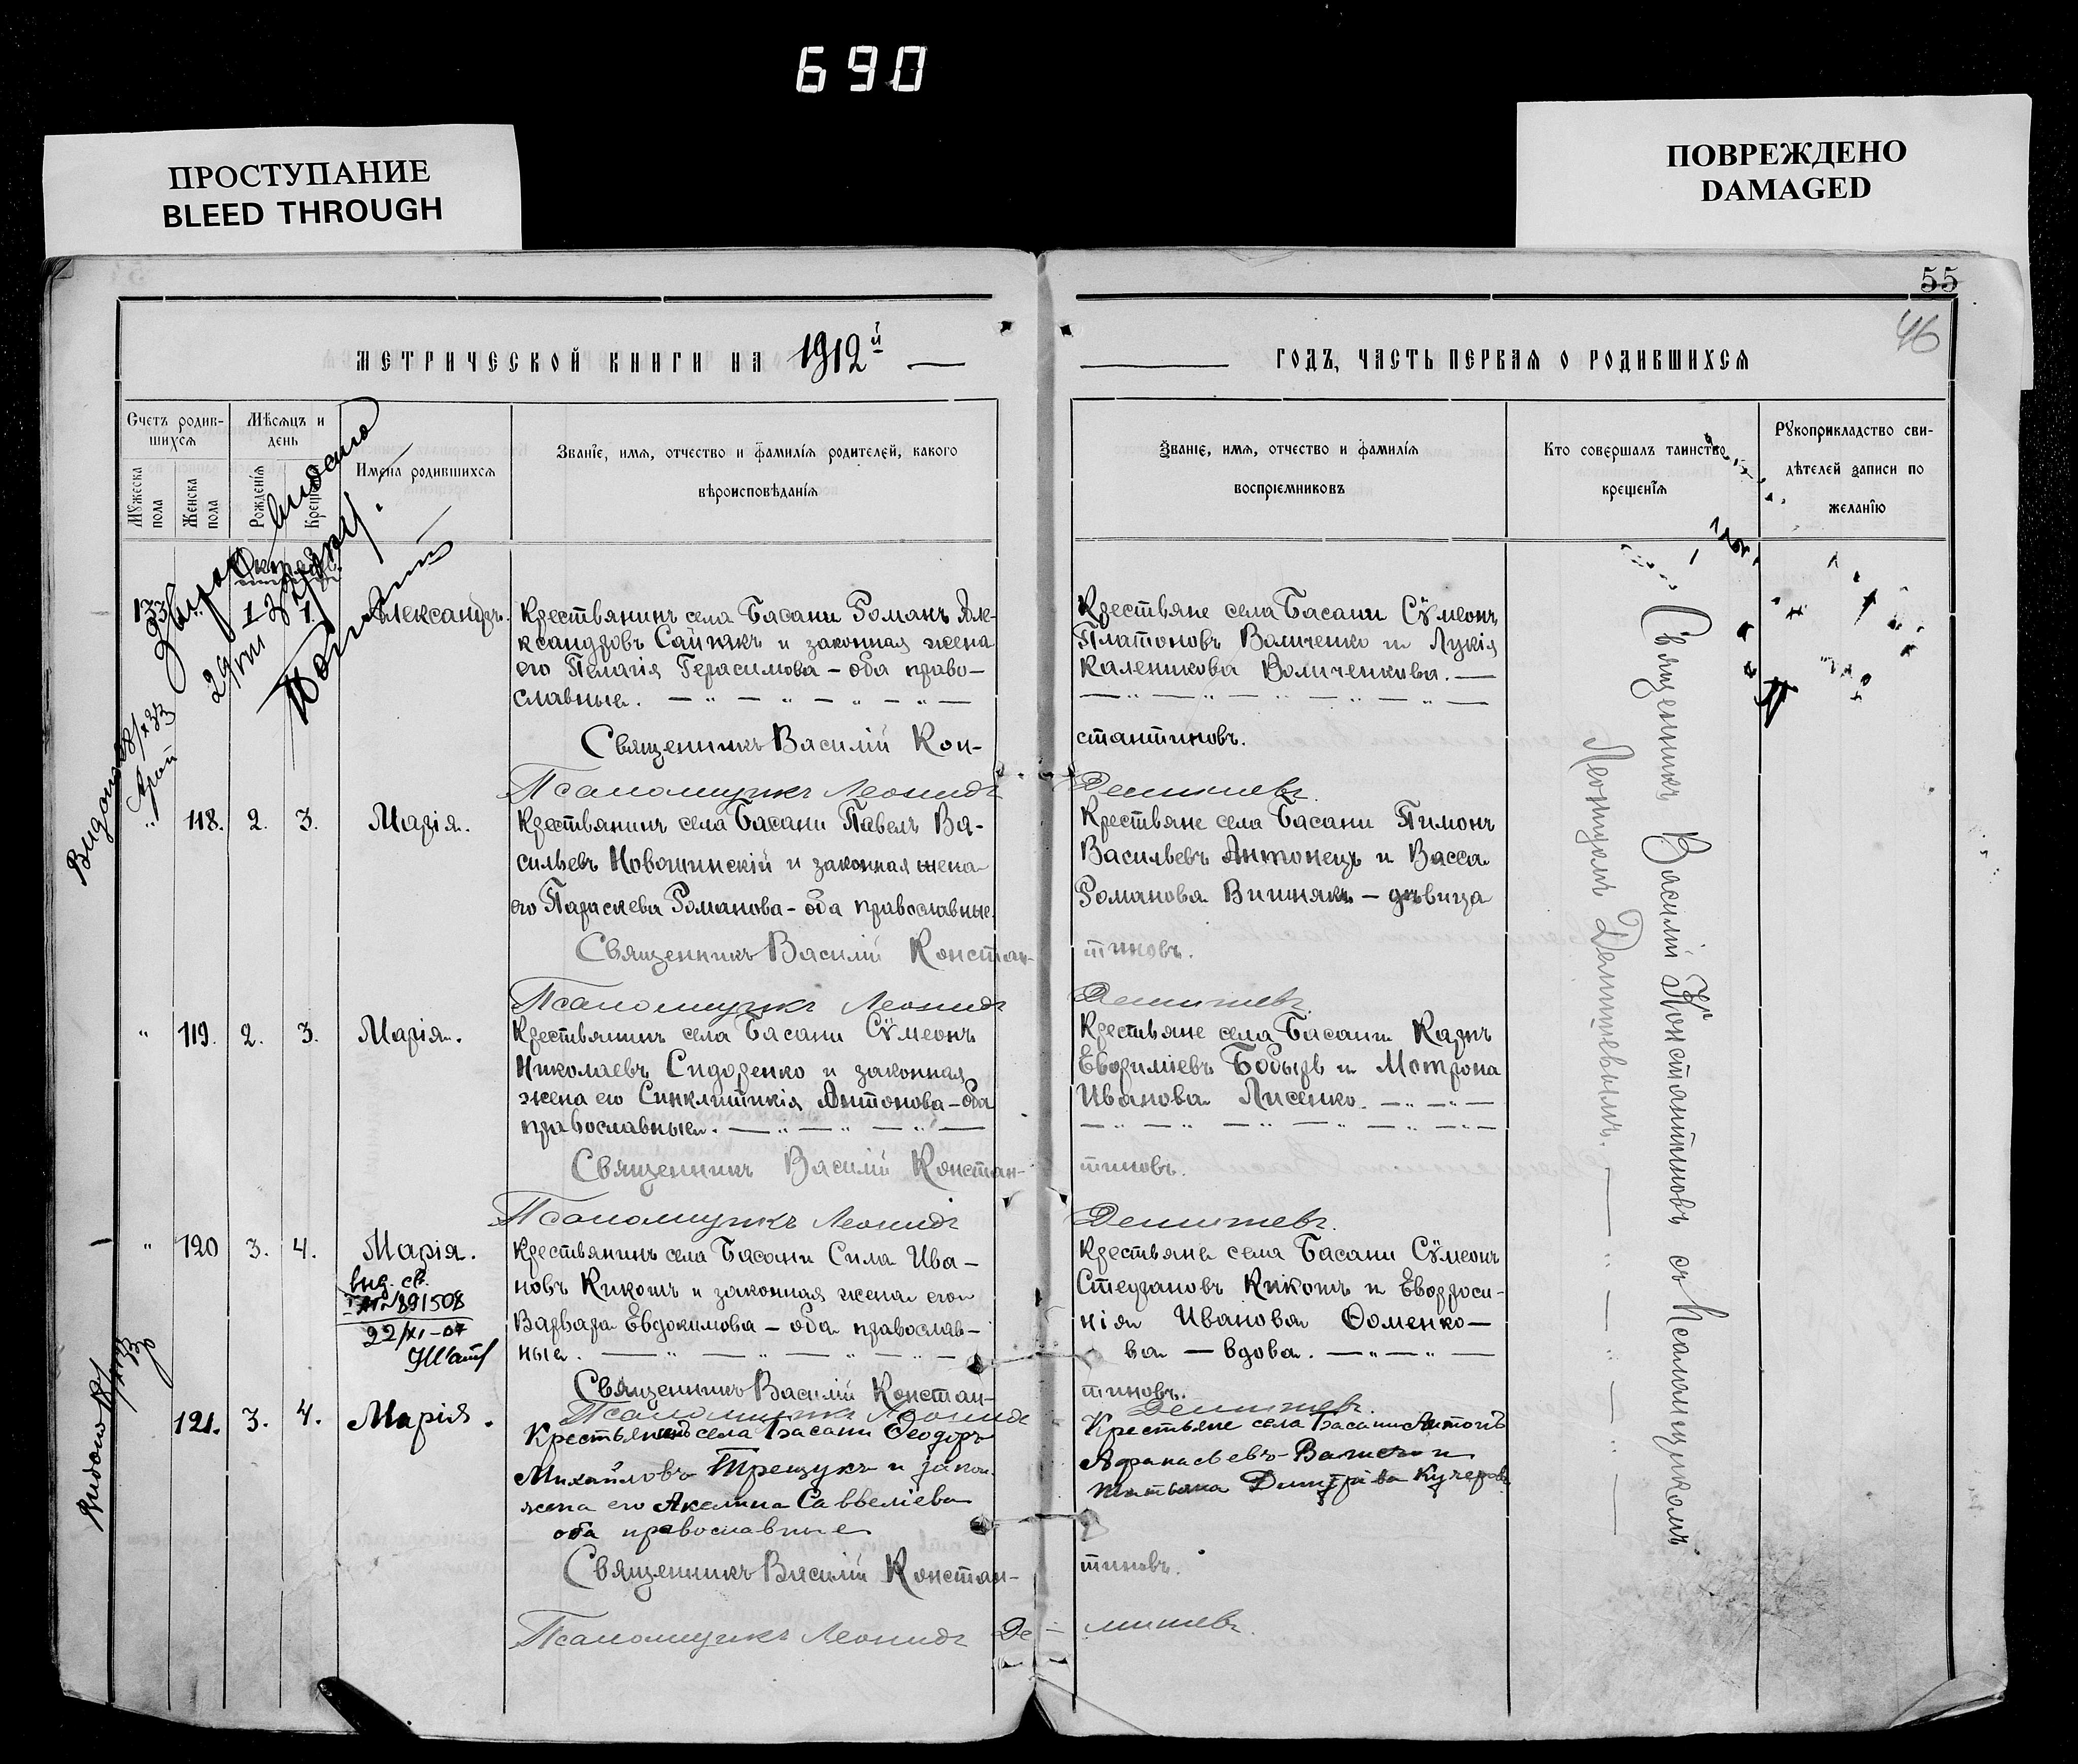 690
ПРОСТУПАНИЕ
BLEED THROUGH
ПОВРЕЖДЕНО
DAMAGED
55
46
МЕТРИЧЕСКОЙ КНИГИ НА 1912й
ГОДЪ, ЧАСТЬ ПЕРВАЯ О РОДИВШИХСЯ
Счетъ родив-
шихся
Мужеска пола
Женска пола
Мѣсяцъ и
день
Рожденія
Крещенія
Имена родившихся
Званіе, имя, отчество и фамилія родителей, какого
вѣроисповѣданія
Званіе, имя, отчество и фамилія
воспріемниковъ
Кто совершалъ таинство
крещенія
Рукоприкладство сви-
дѣтелей записи по
желанію
133
1.
Александръ.
Крестьянинъ села Басани Романъ Але-
ксандровъ и законная жена
его Пелагія Герасимова – оба право-
славные.
Священникъ Василій Кон-
Псаломщикъ Леонидъ
Крестьяне села Басани Сѵмеонъ
Платоновъ Величенко и Лукія
Каленикова Величенкова.
стантиновъ.
Демишевъ.
" 118. 2. 3. Марія.
Крестьянинъ села Басани Павелъ Ва-
сильевъ Новошинскій и законная жена
его Параскева Романова – оба православные.
Священникъ Василій Констан-
Псаломщикъ Леонидъ
Крестьяне села Басани Пимонъ
Васильевъ Антонецъ и Васса
Романова Вишнякъ – дѣвица
тиновъ.
Демишевъ.
" 119. 2. 3. Марія.
Крестьянинъ села Басани Сѵмеонъ
Николаевъ Сидоренко и законная
жена его Синклитикія Антонова – оба
православные.
Священникъ Василій Констан-
Псаломщикъ Леонидъ
Крестьяне села Басани Карпъ
Евфиміевъ Бобырь и Мотрона
Иванова Лисенко.
тиновъ.
Демишевъ.
" 120 3. 4. Марія.
выд. св.
№ 891508
Крестьянинъ села Басани Сила Ива-
новъ Кикотъ и законная жена его
Варвара Евдокимова – оба православ-
ные.
Священникъ Василій Констан-
Псаломщикъ Леонидъ
Крестьяне села Басани Сѵмеонъ
Стефановъ Кикотъ и Евфроси-
нія Иванова Ѳоменко-
ва – вдова.
тиновъ.
Демишевъ.
121. 3. 4. Марія.
Крестьянинъ села Басани Ѳеодоръ
Михайловъ Трещукъ и закон.
жена его Акелина Саввеліева
оба православные
Священникъ Василій Констан-
Псаломщикъ Леонидъ Де-
Крестьяне села Басани Антонъ
Аѳанасьевъ и
Татьяна
тиновъ.
мишевъ.
Священникъ Василій Константиновъ съ Псаломщикомъ
Леонидомъ Демишевымъ.